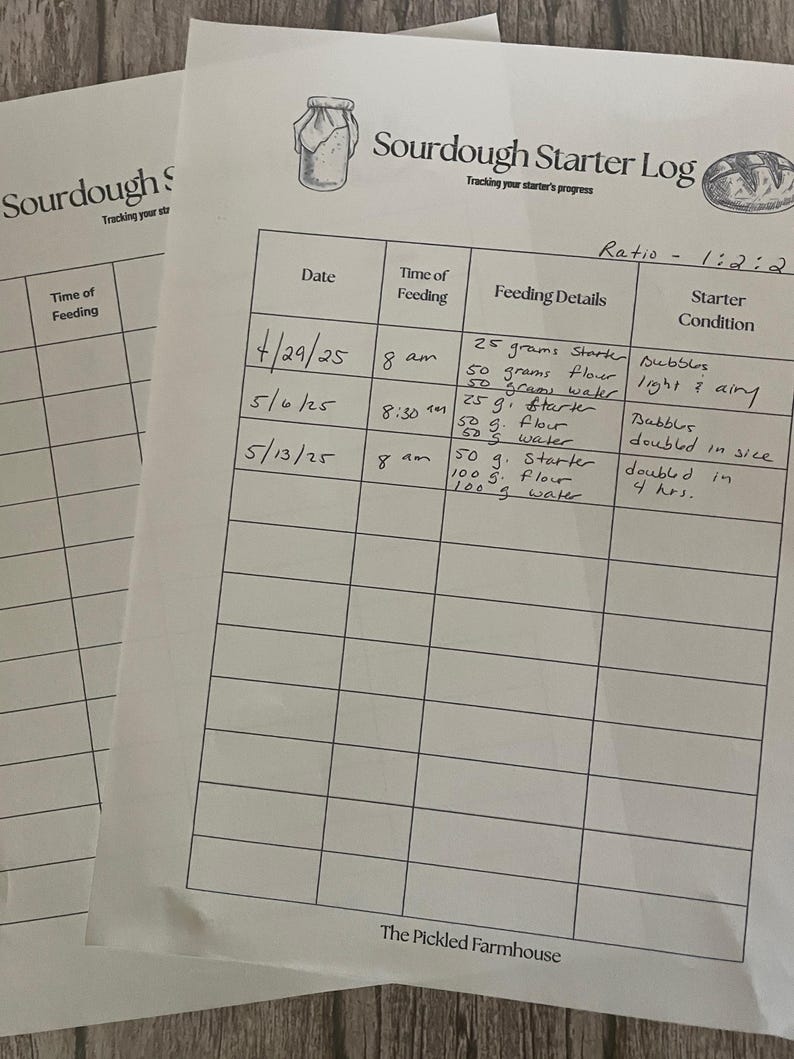 Sourdough S
Tracking your sta
Time of
Feeding
Sourdough Starter Log
Tracking your starter's progress
Ratio - 1:2:2
Date
Time of
Feeding
Feeding Details
Starter
Condition
4/29/25
8 am
25 grams starter
50 grams flour
50 grams water
Bubbles
light & airy
5/6/25
8:30 am
25 g. starter
50 g. flour
50 g water
Bubbles
doubled in size
5/13/25
8 am
50 g. starter
100 g. flour
100 g water
doubled in
4 hrs.
The Pickled Farmhouse